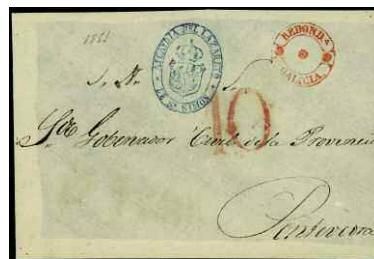 1851
ALCAIDIA DEL LAZARETO
DE Sn. SIMON
REDONDA
GALICIA
S. N.
10
Sor Gobernador Civil de la Provincia
Pontevedra